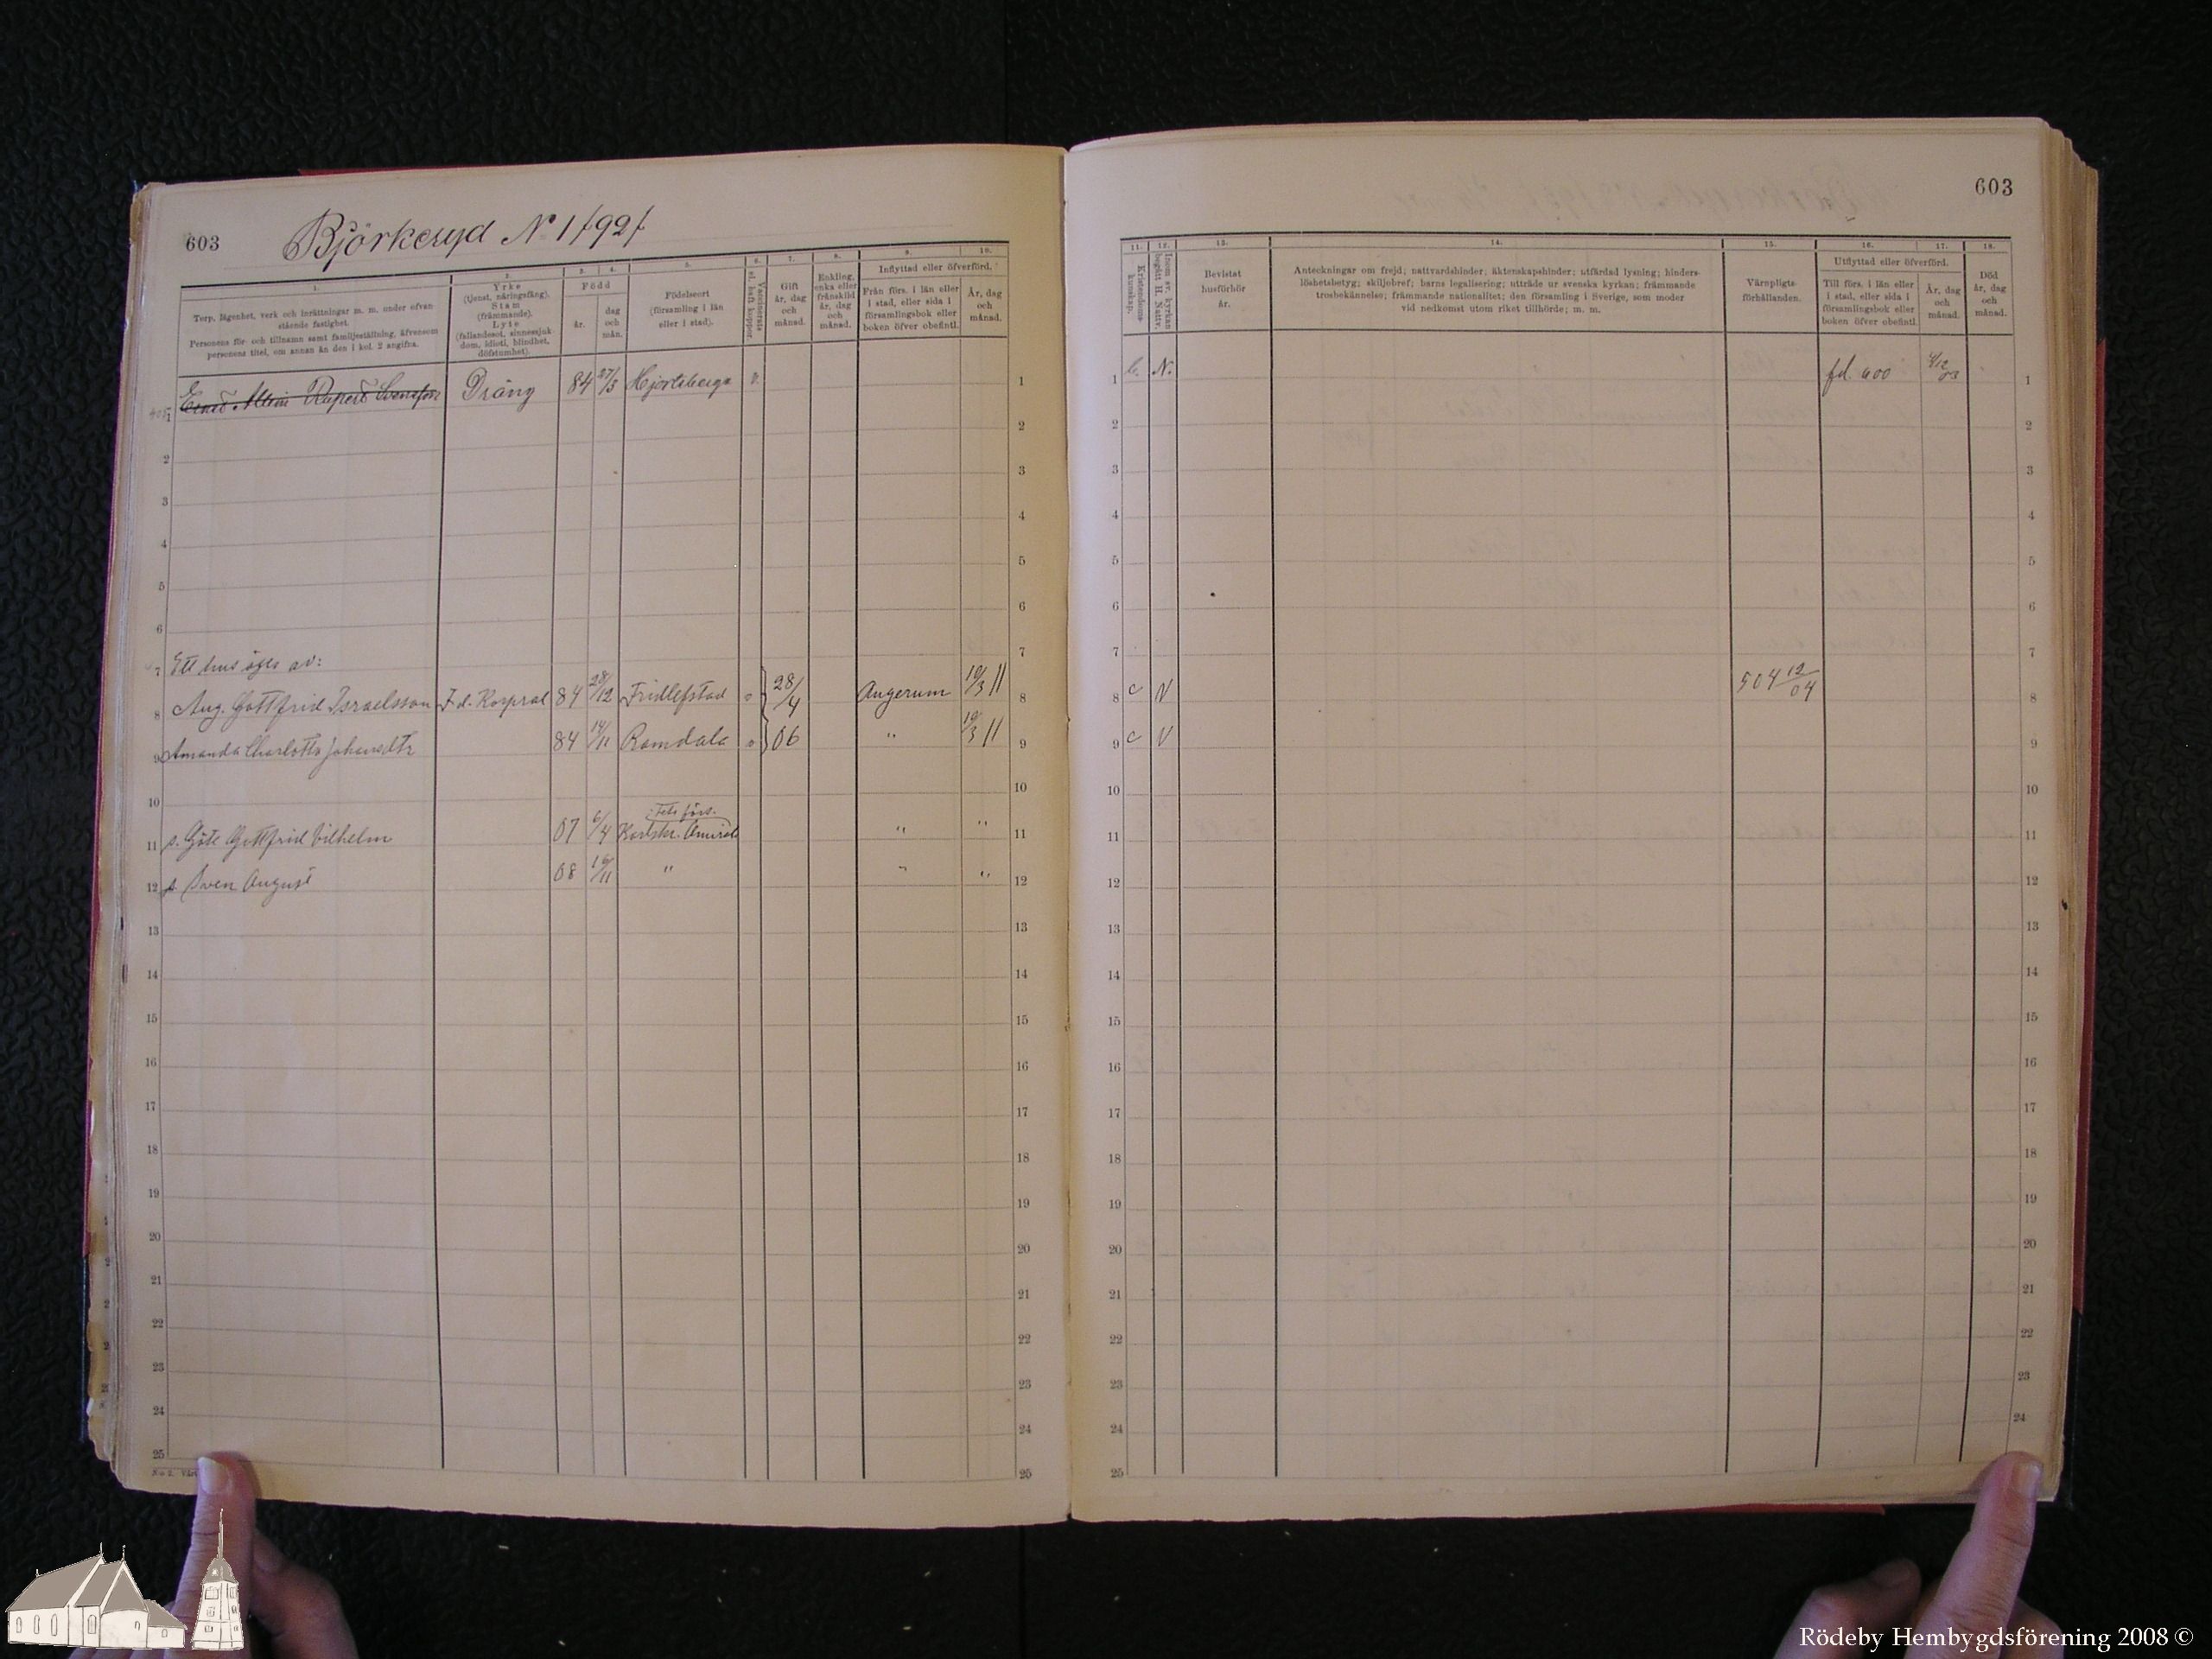 603
Björkeryd No 1 /92/
1.
Torp, lägenhet, verk och inrättningar m. m. under ofvanstående fastighet.
Personens för- och tillnamn samt familjeställning, äfvensom personens titel, om annan än den i kol. 2 angifna.
2.
Yrke
(tjenst, näringsfång).
Stam
(främmande).
Lyte
(fallandesot, sinnessjukdom, idioti, blindhet, döfstumhet).
3. 4.
Född
år. dag och mån.
5.
Födelseort
(församling i län eller i stad).
6.
Vaccinerats el. haft koppor.
7.
Gift år, dag och månad.
8.
Enkling, enka eller frånskild år, dag och månad.
9. 10.
Inflyttad eller öfverförd.
Från förs. i län eller i stad, eller sida i församlingsbok eller boken öfver obefintl.
År, dag och månad.
1 Ernst Albin Rupert Svensson Dräng 84 27/3 Hjortsberga v. 1
2 2
3 3
4 4
5 5
6 6
7 Ett hus äges av: 7
8 Aug. Gottfrid Israelsson F. d. Korpral 84 28/12 Fridlefstad v 28/4 Augerum 19/3 11 8
9 Amanda Charlotta Johansdtr 84 14/11 Ramdala v 06 " 19/3 11 9
10 10
11 s. Göte Gottfrid Vilhelm 07 6/4 Karlskr. Amiral. förs. " " 11
12 s Sven August 08 16/11 " " " 12
13 13
14 14
15 15
16 16
17 17
18 18
19 19
20 20
21 21
22 22
23 23
24 24
25 25
603
11.
Kristendomskunskap.
12.
Inom sv. kyrkan begått H. Nattv.
13.
Bevistat husförhör år.
14.
Anteckningar om frejd; nattvardshinder; äktenskapshinder; utfärdad lysning; hinderslöshetsbetyg; skiljobref; barns legalisering; utträde ur svenska kyrkan; främmande trosbekännelse; främmande nationalitet; den församling i Sverige, som moder vid nedkomst utom riket tillhörde; m. m.
15.
Värnpligtsförhållanden.
16. 17.
Utflyttad eller öfverförd.
Till förs. i län eller i stad, eller sida i församlingsbok eller boken öfver obefintl.
År, dag och månad.
18.
Död år, dag och månad.
1 N. fd. 600 03 1
2 2
3 3
4 4
5 5
6 6
7 7
8 c N 504 12/04 8
9 c V 9
10 10
11 11
12 12
13 13
14 14
15 15
16 16
17 17
18 18
19 19
20 20
21 21
22 22
23 23
24 24
25
Rödeby Hembygdsförening 2008 ©